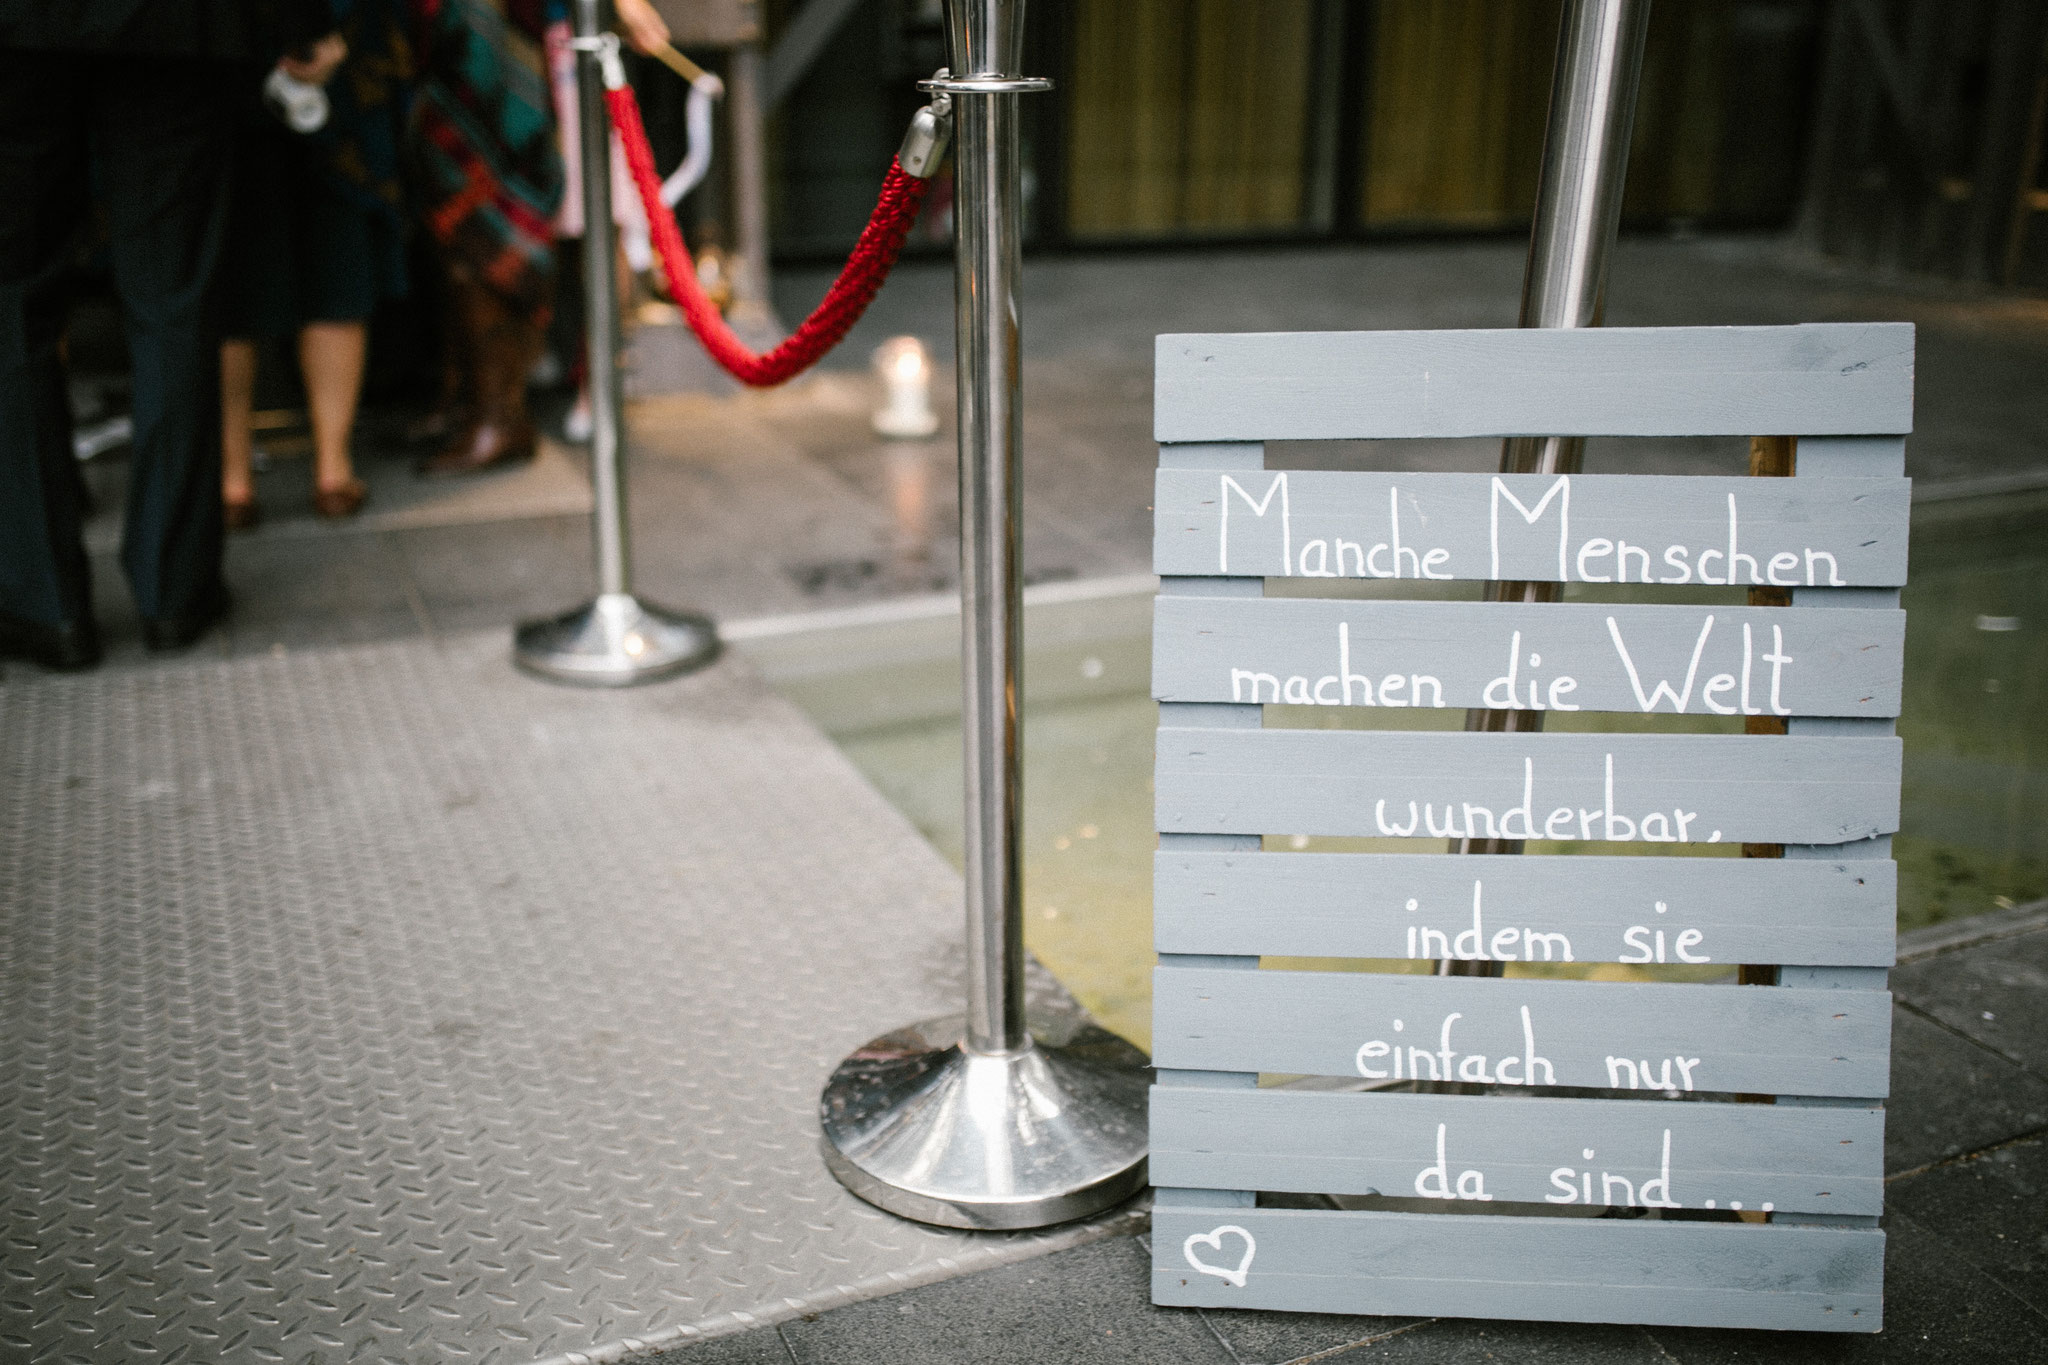 Manche Menschen
machen die Welt
wunderbar,
indem sie
einfach nur
da sind...